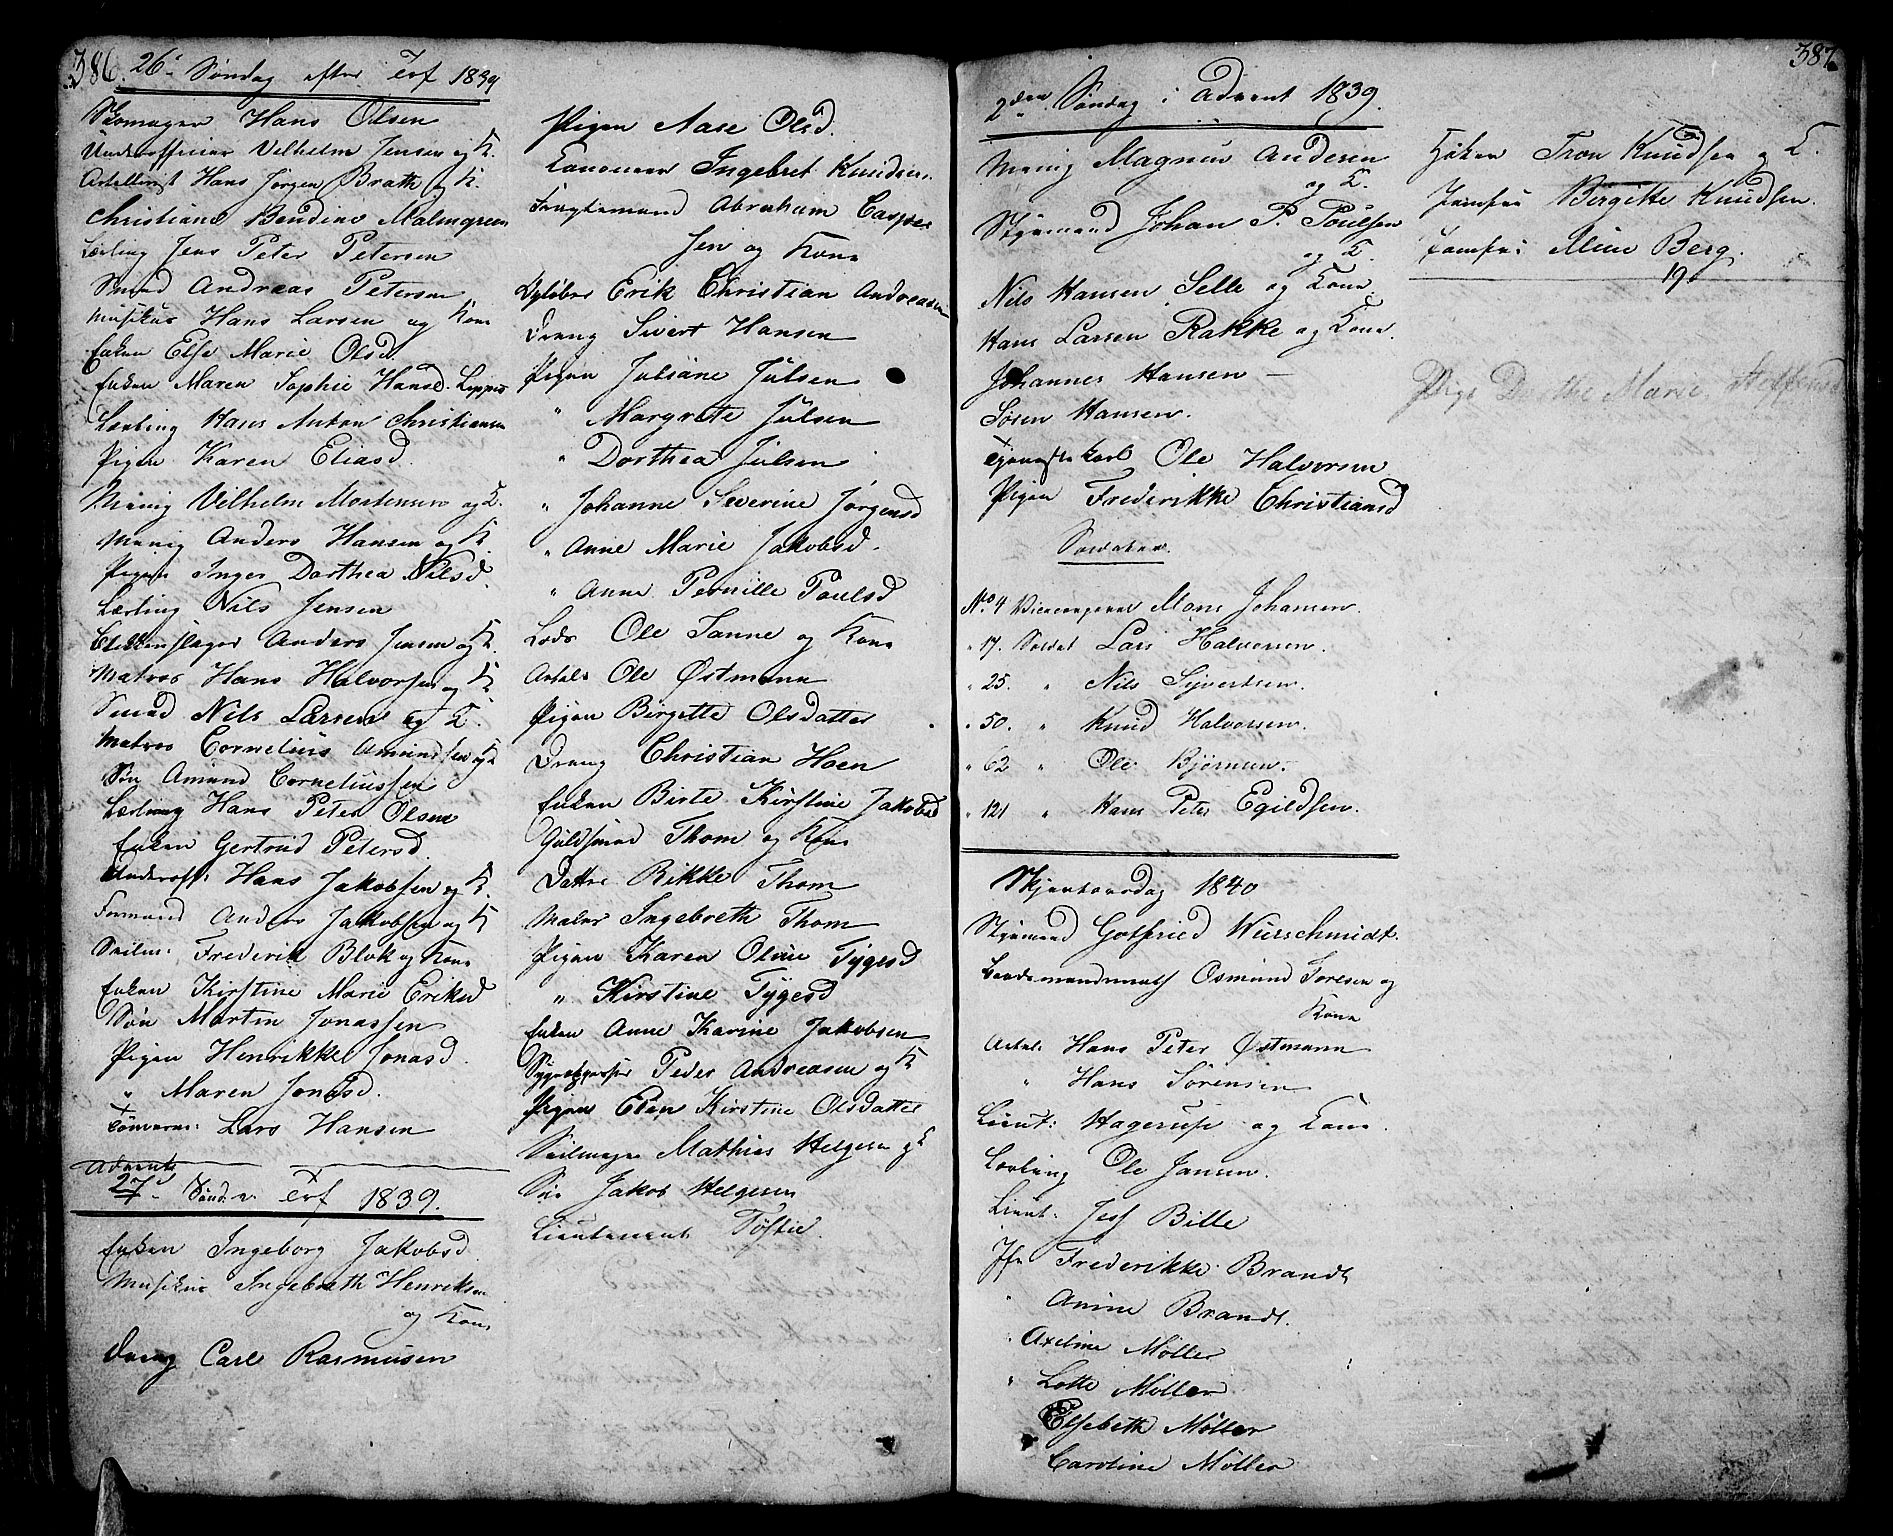 386.
26. Søndag efter Trf 1839
Skomager Hans Olsen
Underofficier Vilhelm Jensen og K.
Artellerist Hans Jørgen Brath og K.
Christiane Bendine Malmgreen
Lærling Jens Peter Petersen
Smed Andreas Petersen
Musikus Hans Larsen og Kone
Enken Else Marie Olsd.
Enken Maren Sophie Hansd.
Lærling Hans Anton Christiansen
Pigen Karen Eliasd.
Menig Vilhelm Mortensen og K.
Menig Anders Hansen og K.
Pigen Inger Dorthea Nilsd.
Lærling Nils Jensen
Blikkenslager Anders Jensen og K.
Matros Hans Halvorsen og K.
Smed Nils Larsen og K.
Matros Cornelius Amundsen og K
Søn Amund Corneliussen
Lærling Hans Peter Olsen
Enken Gertrud Petersd.
Underoff: Hans Jakobsen og K.
Formand Anders Jakobsen og K
Seilm: Frederik Blok og Kone
Enken Kirstine Marie Eriksd
Søn Martin Jonassen
Pigen Henrikke Jonasd.
" Maren Jonasd.
Tømrm: Lars Hansen
Advents
27. Sønd. e. Trf 1839.
Enken Ingeborg Jakobsd.
Musikus Ingebreth Henriksen
og Kone
Dreng Carl Rasmusen
Pigen Aase Olsd.
Ingebret Knudsen.
Fragtemand Abraham Casper
sen og Kone
Erik Christian Andreasen
Dreng Sivert Hansen
Pigen Juliane Julsen
" Margrete Julsen
" Dorthea Julsen
" Johanne Severine Jørgensd
" Anne Marie Jakobsd.
" Anne Pernille Paulsd
Lods Ole Sanne og Kone
Artel: Ole Østmann
Pigen Birgitte Olsdatter
Dreng Christian Hoen
Enken Birte Kirstine Jakobsd
Guldsmed Thom og Kone
Datter Rikke Thom
Maler Ingebreth Thom
Pigen Karen Oline Tygesd
" Kirstine Tygesd
Enken Anne Karine Jakobsen
Peder Andreasen og K
Pigen Elen Kirstine Olsdatter
Seilmager Mathias Helgesen og K
Søn Jakob Helgesen
Lieutenant Tøftie
387.
2den Søndag i Advent 1839.
Menig Magnus Andersen
og K.
Styrmand Johan P. Poulsen
og K.
Nils Hansen Selle og Kone.
Hans Larsen Rakke og Kone.
Johannes Hansen –
Søren Hansen.
Tjenestekarl Ole Halvorsen
Pigen Frederikke Christiansd
Soldater.
No. 4 Vicecorporal Mons Johansen.
" 17. Soldat Lars Halvorsen.
" 25. " Nils Syvertsen.
" 50. " Knud Halvorsen.
" 62 " Ole Bjørnsen.
" 121 " Hans Peter Egildsen.
Skjærtorsdag 1840
Styrmand Gotfried Würschmidt.
Baadsmandsmath Osmund Soresen og
Kone
Artel: Hans Peter Østmann
" Hans Sørensen
Lieut: Hagerup og Kone.
Lærling Ole Jansen.
Lieut. Jess Bille
Jfr Frederikke Brandt
" Anine Brandt.
" Axeline Møller
" Lotte Møller
Elsebeth Møller
Caroline Møller
Høker Tron Knudsen og K.
Jomfru Birgitte Knudsen.
Jomfru Aline Berg.
19
Pige Dorthe Marie Steffensd